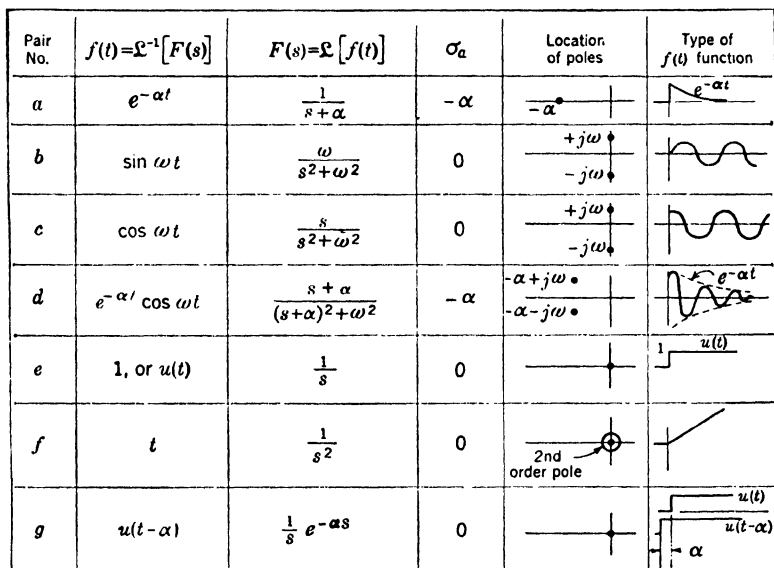 Pair No. f(t)=ℒ⁻¹[F(s)] F(s)=ℒ[f(t)] σₐ Location of poles Type of f(t) function
a e^{-αt} 1/(s+α) -α -α e^{-αt}
b sin ωt ω/(s²+ω²) 0 +jω -jω
c cos ωt s/(s²+ω²) 0 +jω -jω
d e^{-αt} cos ωt (s+α)/((s+α)²+ω²) -α -α+jω -α-jω e^{-αt}
e 1, or u(t) 1/s 0 1 u(t)
f t 1/s² 0 2nd order pole
g u(t-α) 1/s e^{-αs} 0 u(t) u(t-α) α